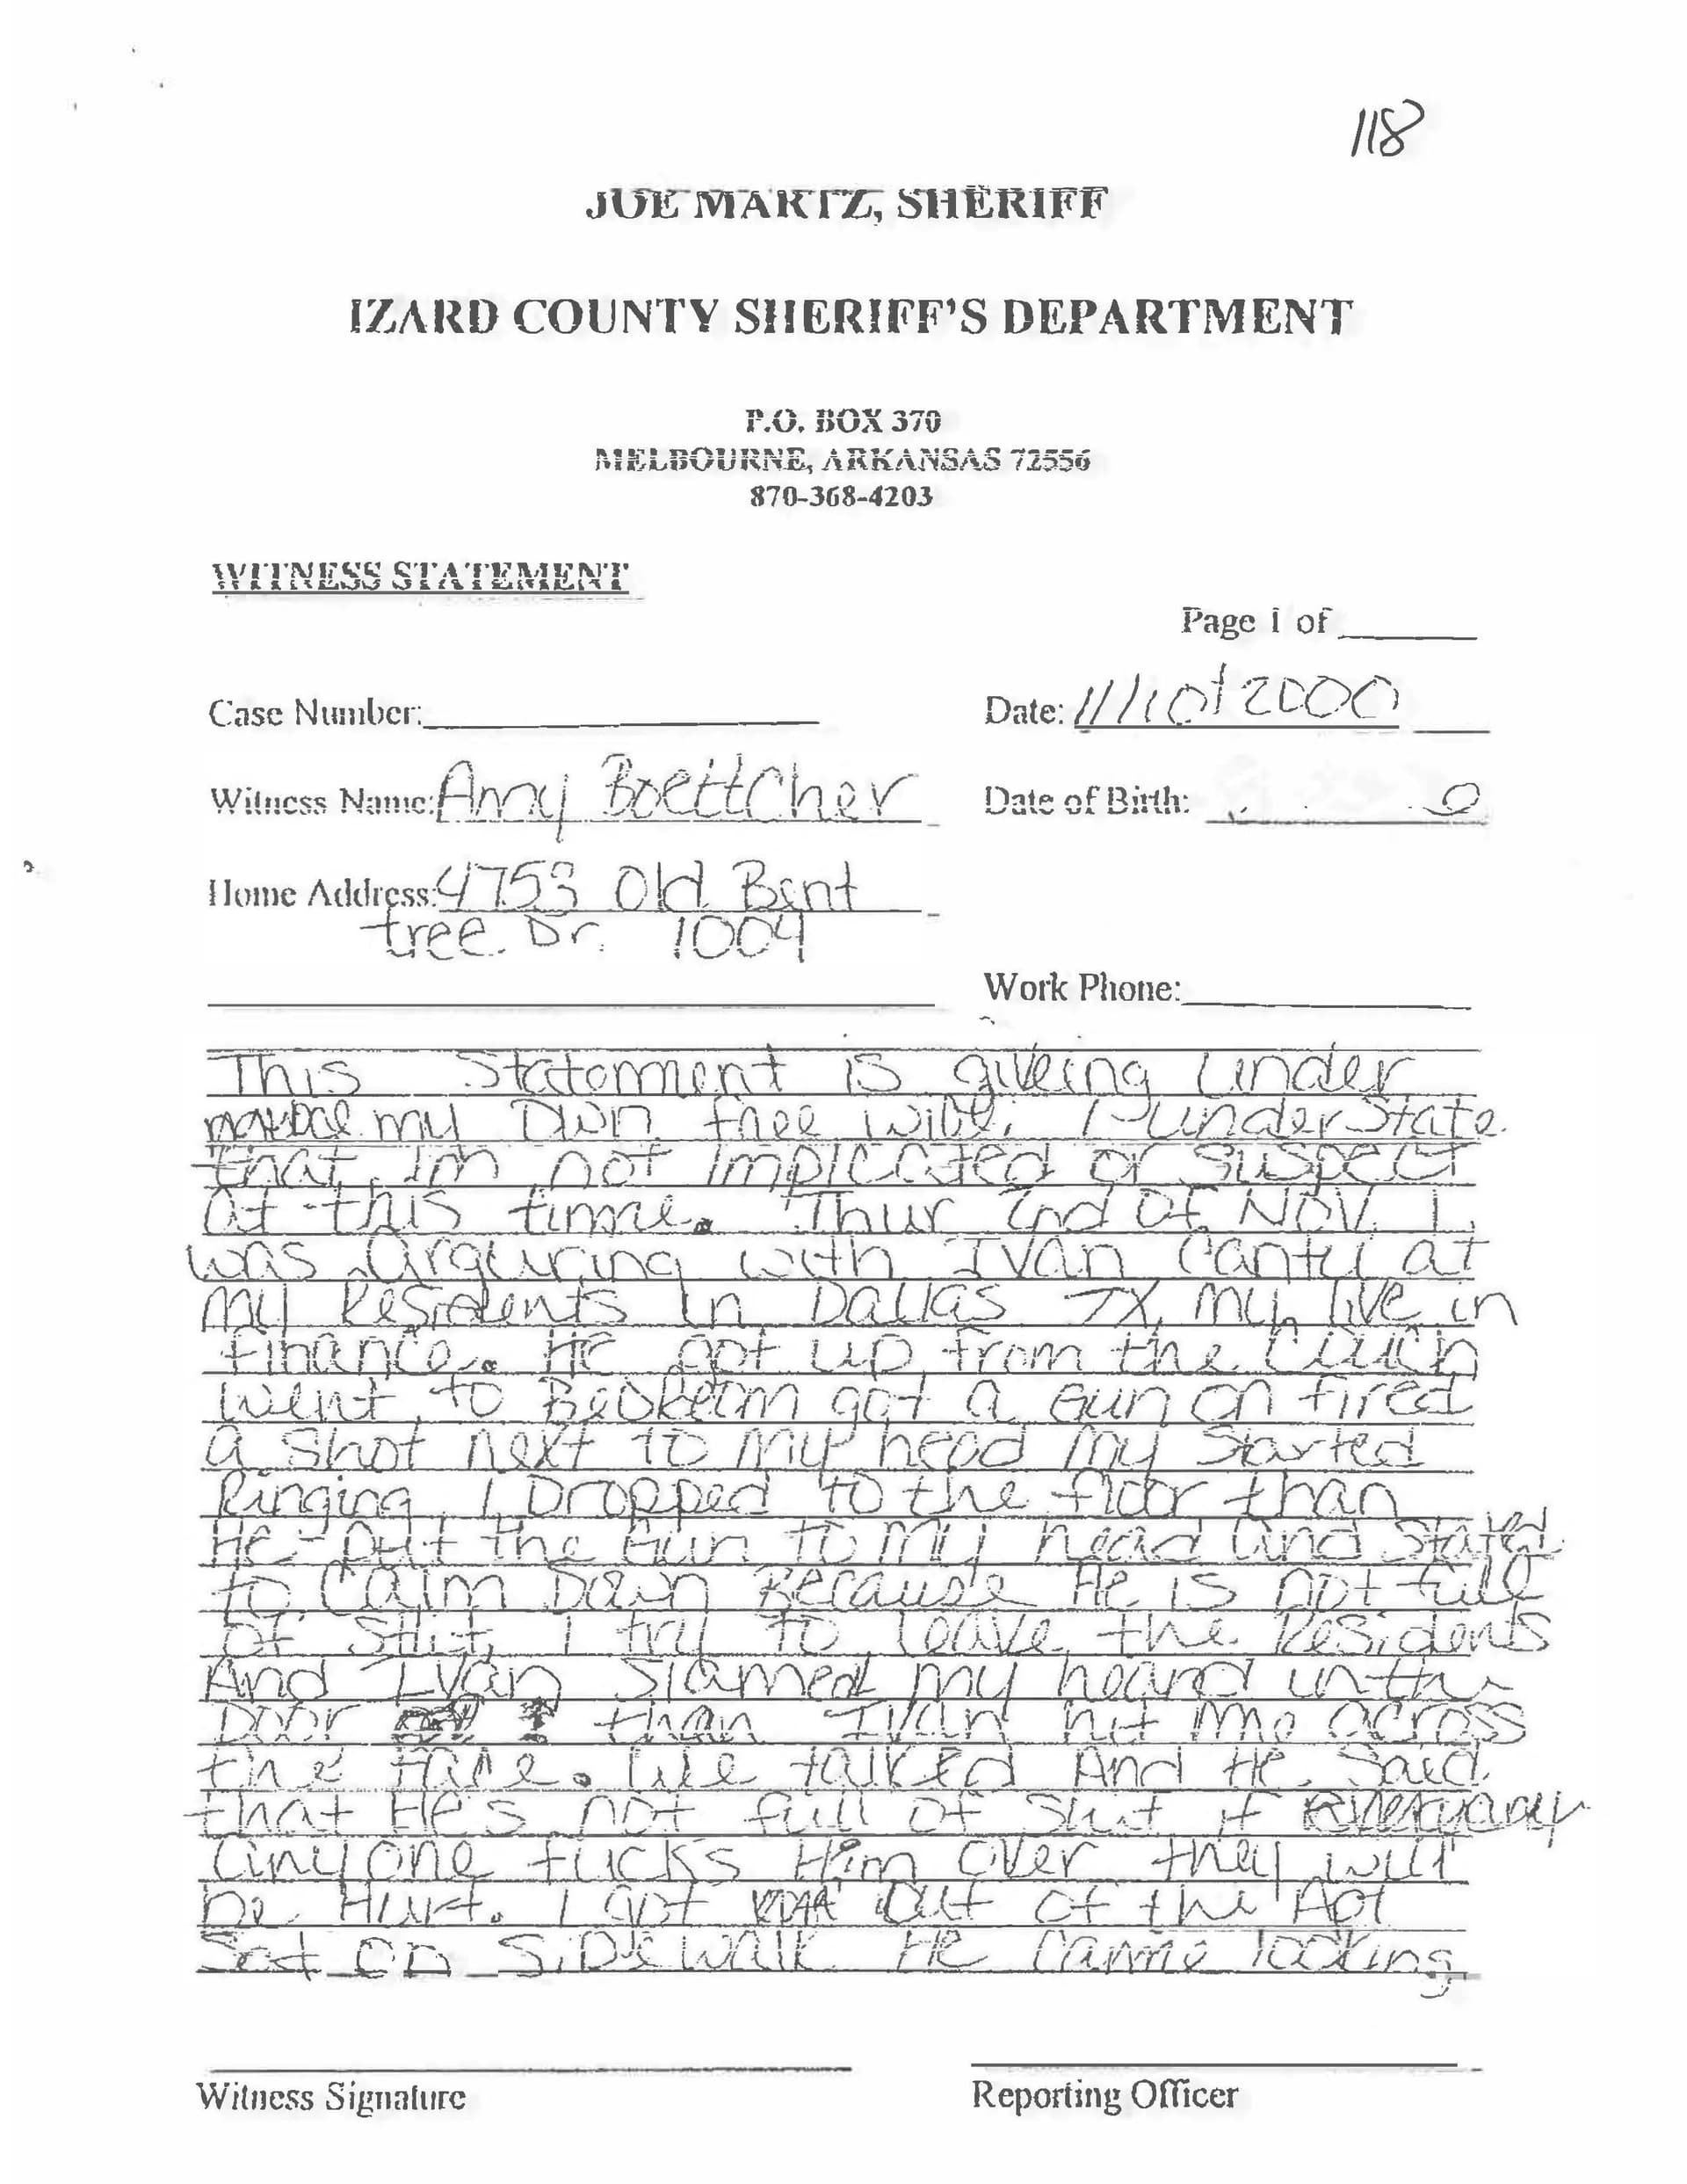 118
JOE MARTZ, SHERIFF
IZARD COUNTY SHERIFF'S DEPARTMENT
P.O. BOX 370
MELBOURNE, ARKANSAS 72556
870-368-4203
WITNESS STATEMENT
Page 1 of
Case Number: Date: 11/10/2000
Witness Name: Amy Boettcher Date of Birth: 0
Home Address: 4753 Old Bent
tree Dr. 1004
Work Phone:
This Statement is giveing under
my Own free will. I understate
that Im not Implicated or suspect
at this time. Thur 2nd Of NOV. I
was arguring with Ivan Cantu at
my Residents in Dallas TX, my live in
finance. He got up from the Couch
went to Bedroom got a Gun on fired
a shot next to my head my started
Ringing, I Dropped to the floor than
He put the Gun to my head and stated
to Calm Down Because He is not full
of Shit, I try to leave the Residents
And Ivan Slamed my heard in the
Door than Ivan hit me across
the face. We talked And He Said
that He's not full of Shit if
anyone fucks Him over they will
be Hurt. I got out of the Apt
Sat on Sidewalk He came looking
Witness Signature Reporting Officer